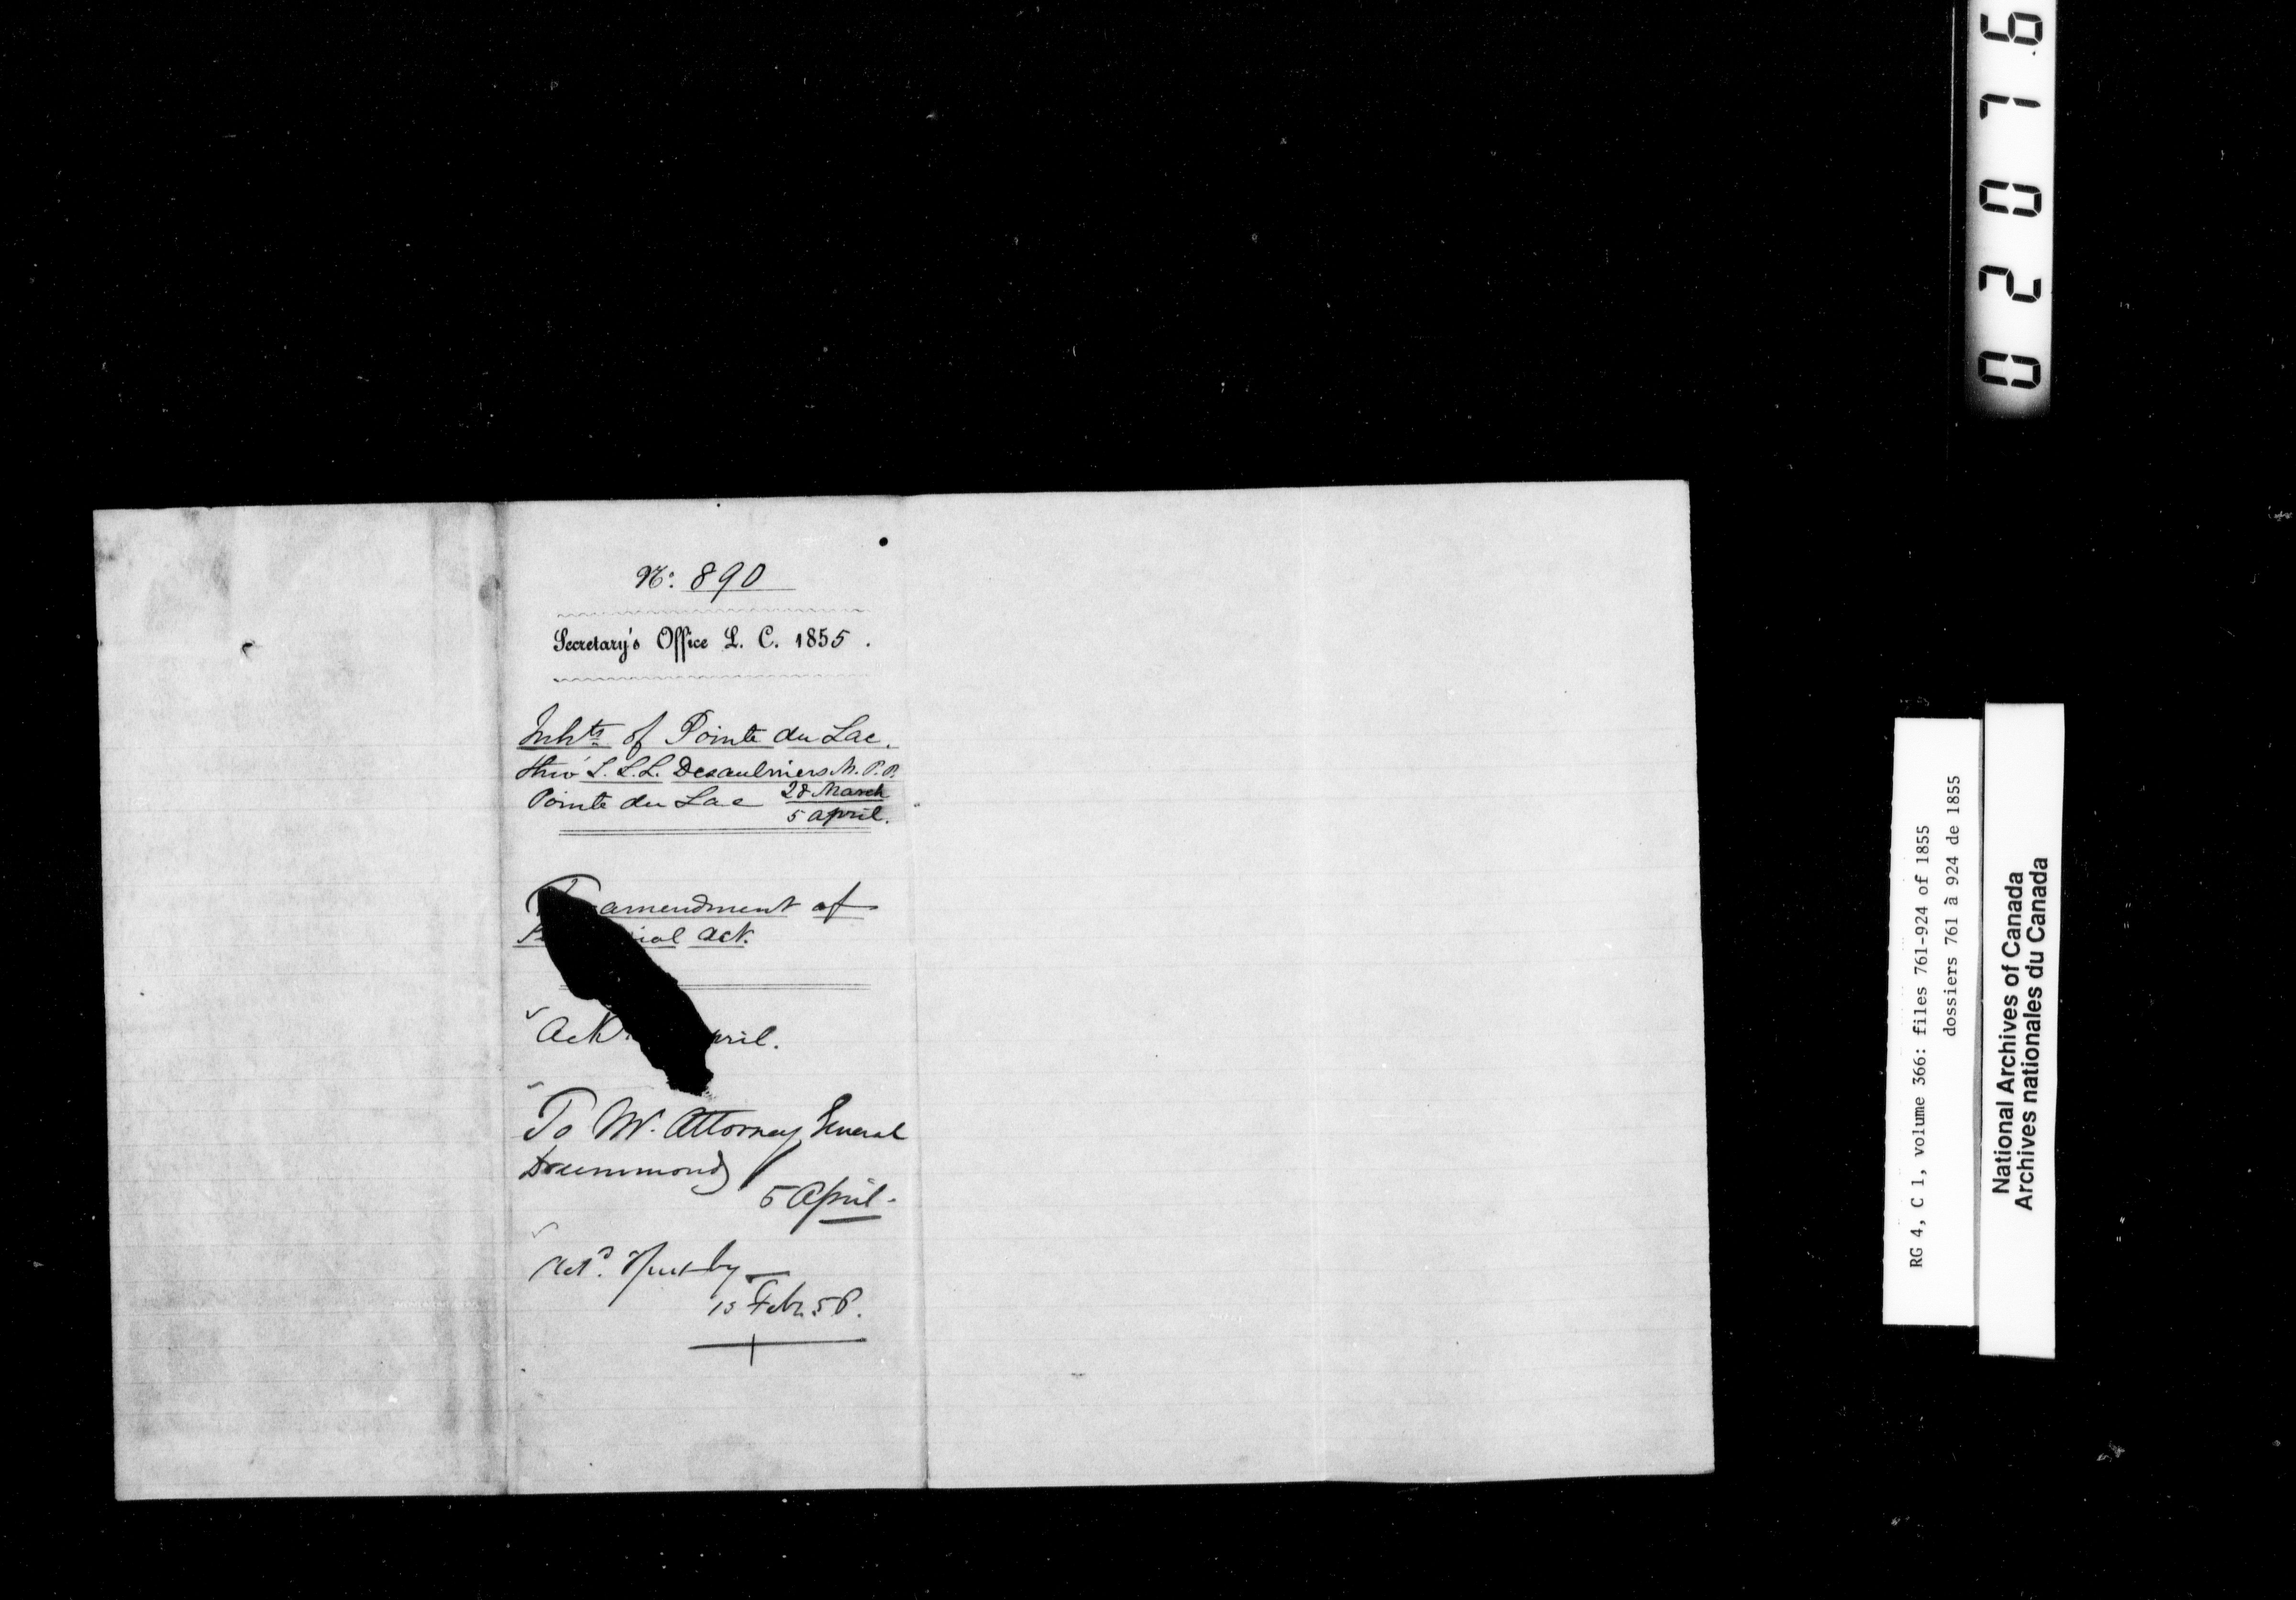 No: 890
Secretary's Office L. C. 1855.
Inhts of Pointe du Lac.
thro' L. L. L. Desaulniers M. P. P.
Pointe du Lac 28 March
5 April.
amendment of
Act.
To Mr. Attorney General
Drummond
5 April.
15 Feb.
02076
RG 4, C 1, volume 366: files 761-924 of 1855
dossiers 761 à 924 de 1855
National Archives of Canada
Archives nationales du Canada